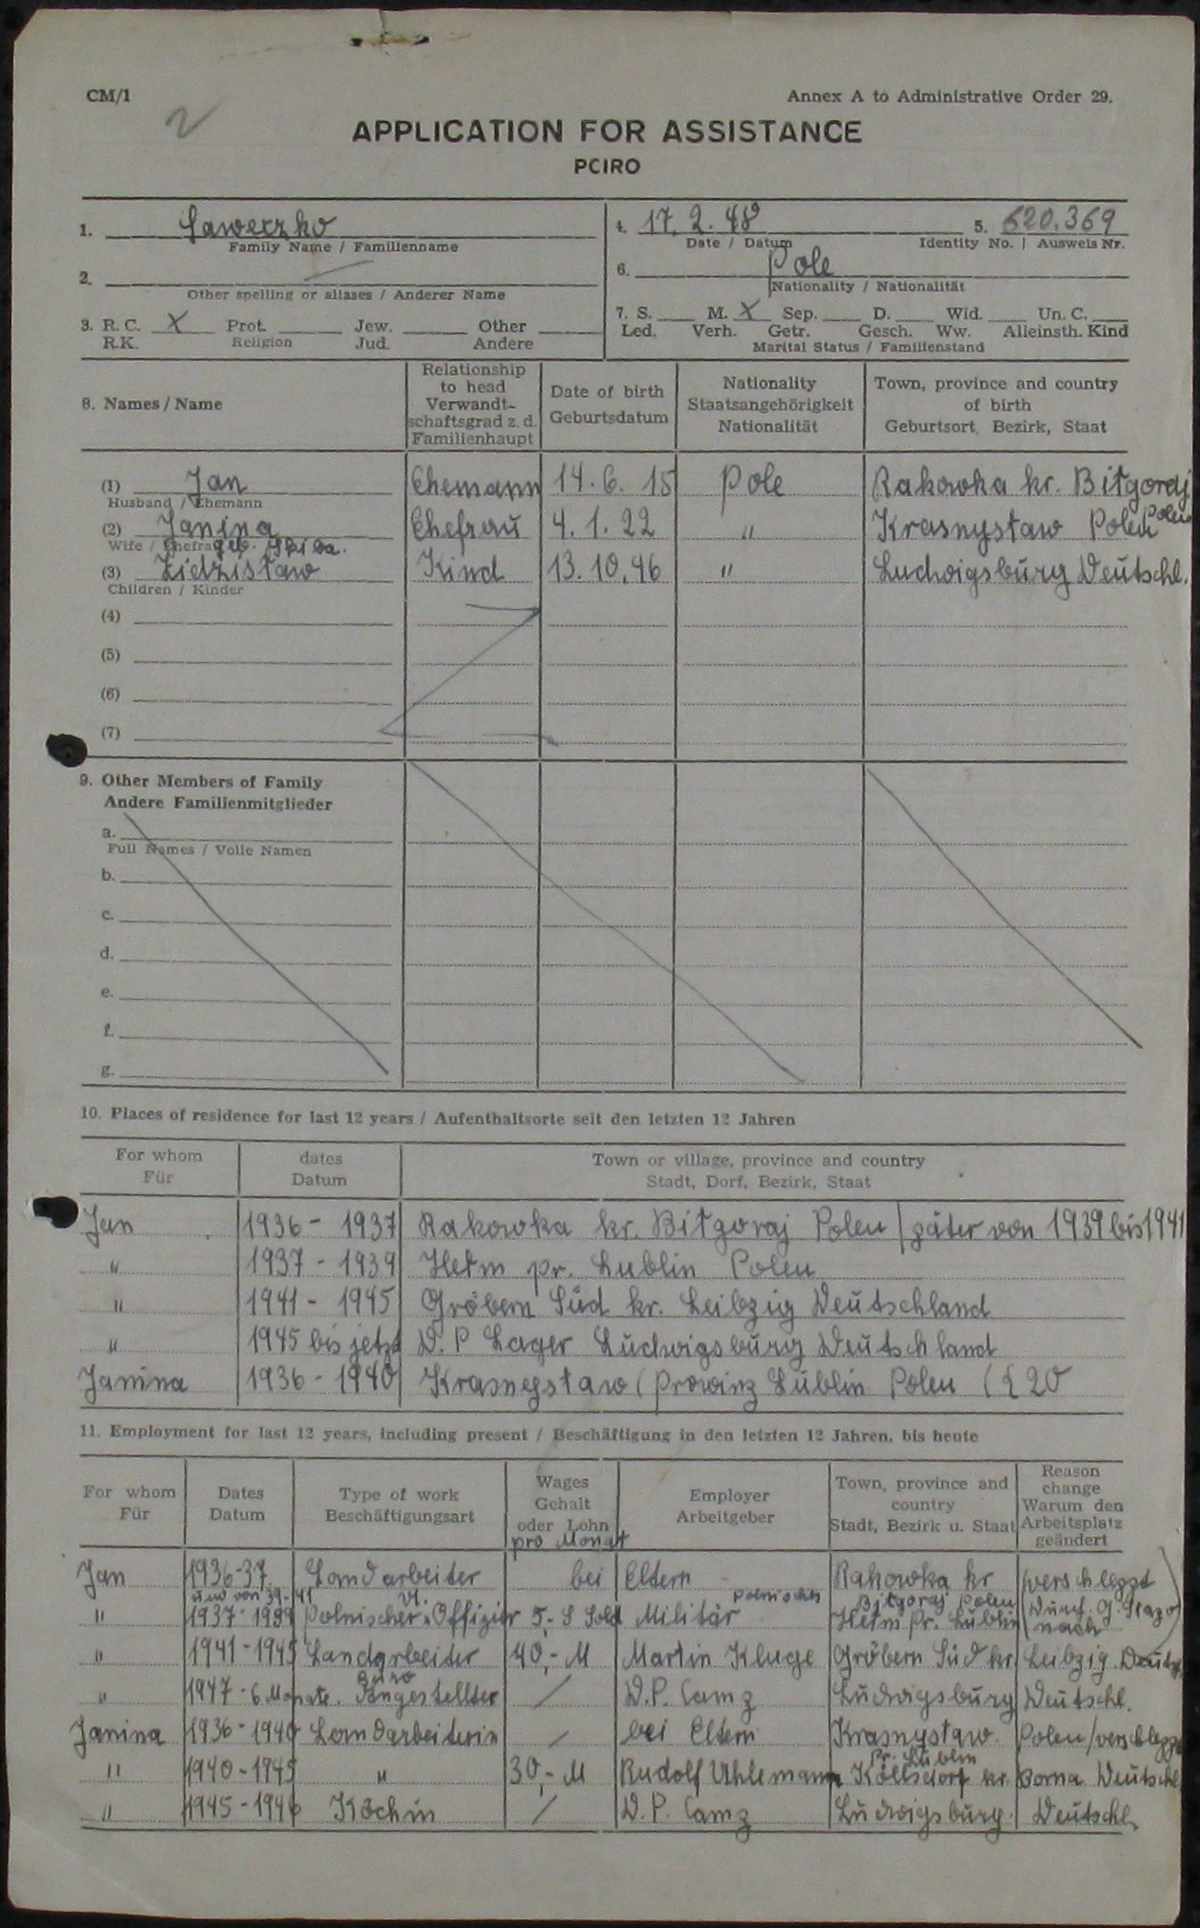 CM/1
Annex A to Administrative Order 29.
2
APPLICATION FOR ASSISTANCE
PCIRO
1. Saweczko
Family Name / Familienname
4. 17. 2. 48 5. 620.369
Date / Datum Identity No. | Ausweis Nr.
2.
Other spelling or aliases / Anderer Name
6. Pole
Nationality / Nationalität
3. R. C. X Prot. Jew. Other
R.K. Religion Jud. Andere
7. S. M. X Sep. D. Wid. Un. C.
Led. Verh. Getr. Gesch. Ww. Alleinsth. Kind
Marital Status / Familienstand
8. Names / Name
Relationship to head Verwandt-schaftsgrad z. d. Familienhaupt
Date of birth Geburtsdatum
Nationality Staatsangehörigkeit Nationalität
Town, province and country of birth Geburtsort, Bezirk, Staat
(1) Jan Ehemann 14. 6. 15 Pole Rakowka kr. Biłgoraj Polen
Husband / Ehemann
(2) Janina Ehefrau 4. 1. 22 " Krasnystaw Polen
Wife / Ehefrau geb.
(3) Zidzisław Kind 13. 10. 46 " Ludwigsburg Deutschl.
Children / Kinder
(4)
(5)
(6)
(7)
9. Other Members of Family
Andere Familienmitglieder
a.
Full Names / Volle Namen
b.
c.
d.
e.
f.
g.
10. Places of residence for last 12 years / Aufenthaltsorte seit den letzten 12 Jahren
For whom Für
dates Datum
Town or village, province and country
Stadt, Dorf, Bezirk, Staat
Jan 1936 - 1937 Rakowka kr. Biłgoraj Polen / später von 1939 bis 1941
" 1937 - 1939 Hełm pr. Lublin Polen
" 1941 - 1945 Gröbern Süd kr. Leibzig Deutschland
" 1945 bis jetzt D. P Lager Ludwigsburg Deutschland
Janina 1936 - 1940 Krasnystaw (prowinz Lublin Polen
11. Employment for last 12 years, including present / Beschäftigung in den letzten 12 Jahren, bis heute
For whom Für
Dates Datum
Type of work Beschäftigungsart
Wages Gehalt oder Lohn
pro Monat
Employer Arbeitgeber
Town, province and country Stadt, Bezirk u. Staat
Reason change Warum den Arbeitsplatz geändert
Jan 1936-37. Landarbeiter bei Eltern Rakowka kr verschleppt
und von 39-41 polnisches Biłgoraj Polen
" 1937-1939 Polnischer Offizier 5,- Sold Militär Hełm pr. Lublin nach
" 1941-1945 Landarbeiter 40,- M Martin Kluge Gröbern Süd kr. Leibzig Deuts
Büro
" 1947 - 6 Monate. Angestellter / D.P. Camp Ludwigsburg Deutschl.
Janina 1936-1940 Landarbeiterin / bei Eltern Krasnystaw. Polen/verschleppt
Pr. Lublin
" 1940-1945 " 30,- M Rudolf Uhlemann Köllsdorf kr. Borna Deutschl
" 1945-1946 Köchin / D.P. Camp Ludwigsburg. Deutschl.